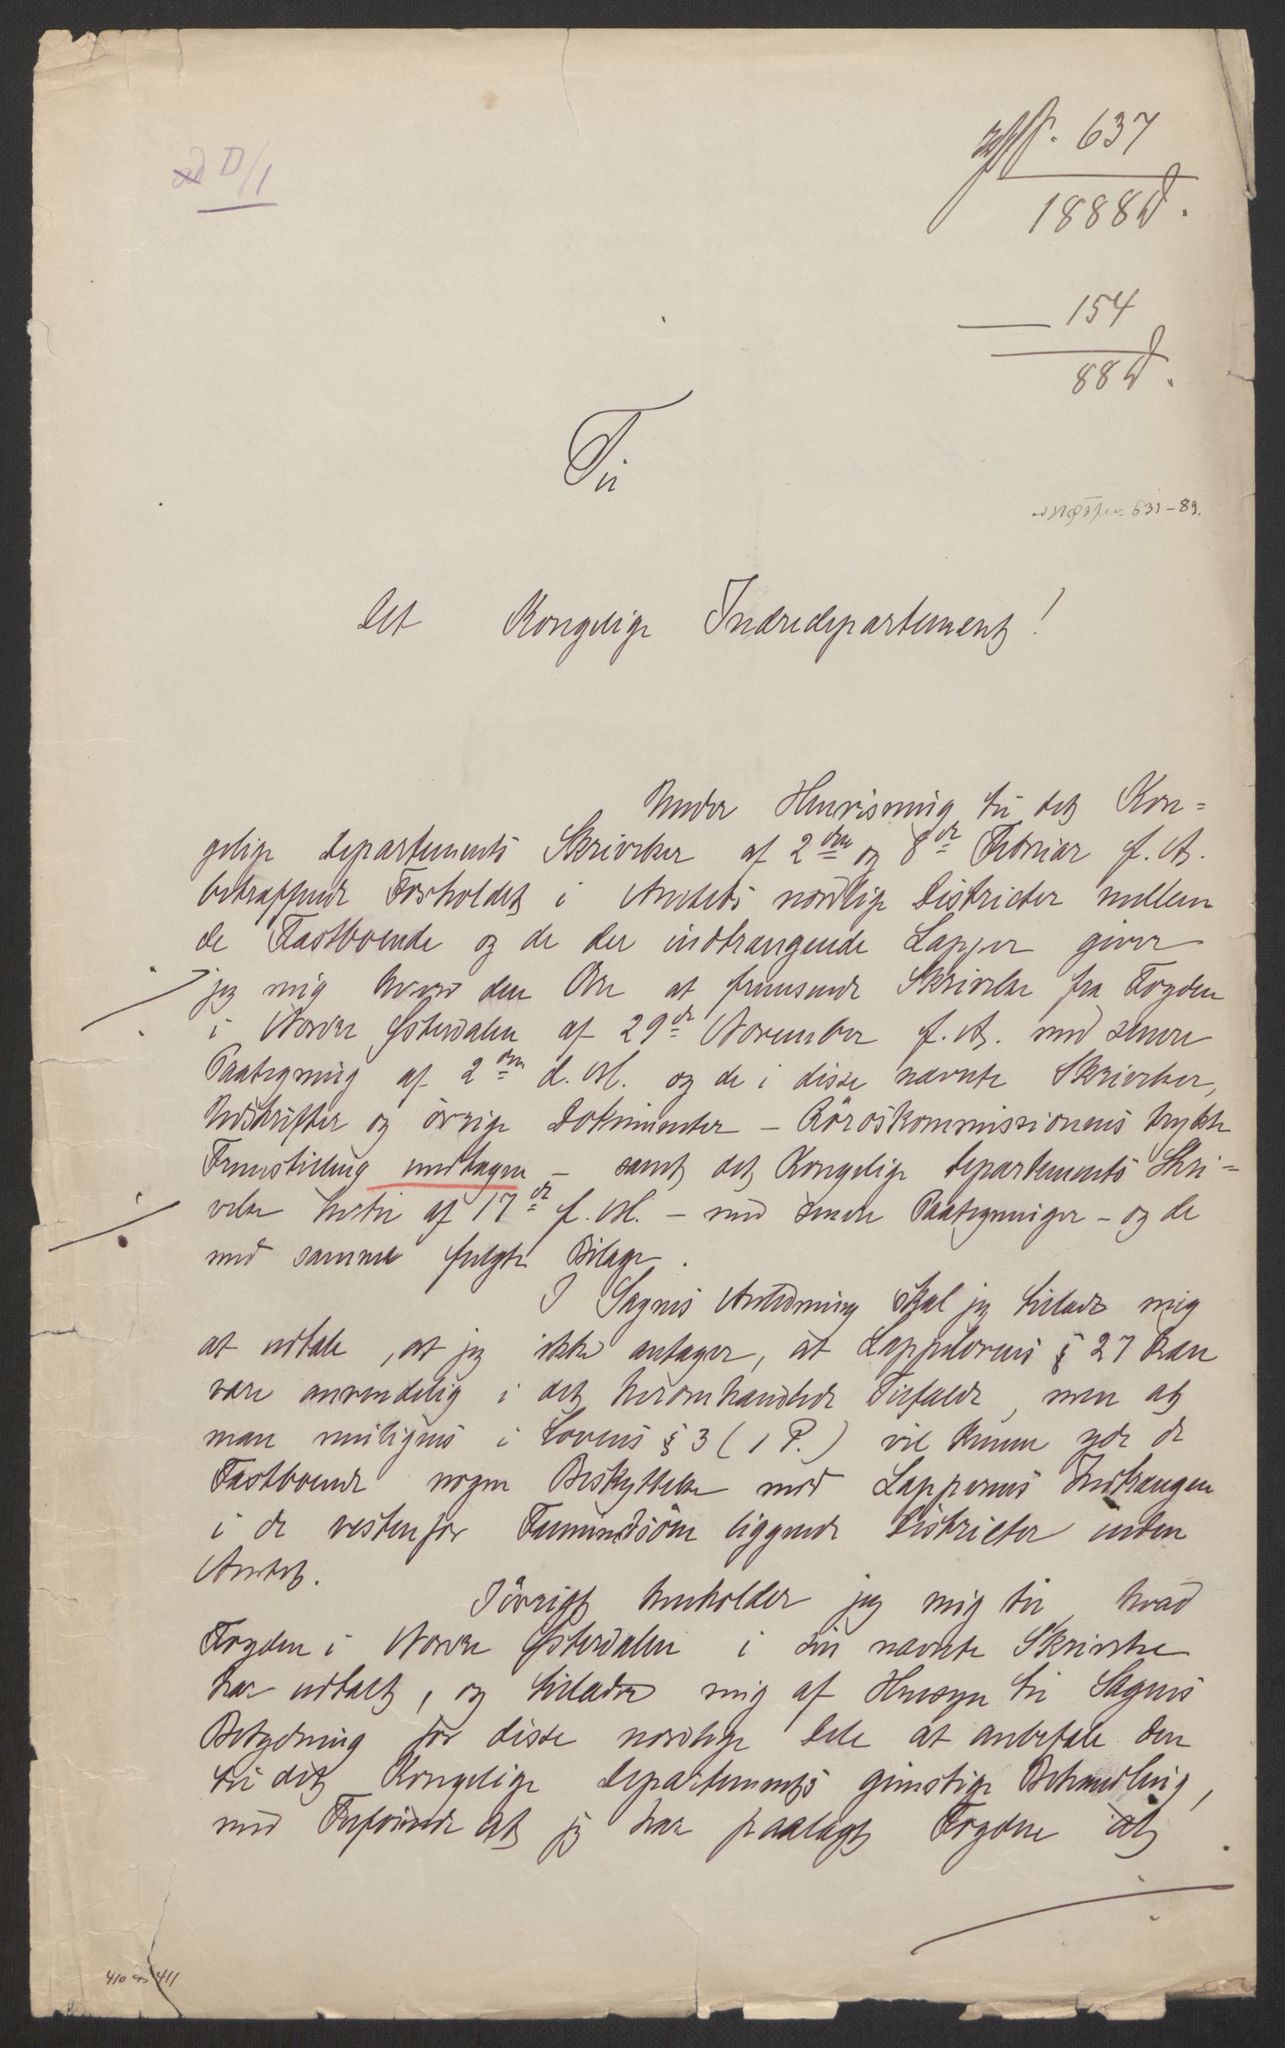 ad D/1
Jff. 637
1888 D.
154
88 D.
631-89.
Til
det Kongelige Indredepartement!
Under Henvisning til det Kon=
gelige Departements Skrivelser af 2den og 8de Februar f. A.
betræffende Forholdet i Amtets nordlige Distrikter mellem
de Fastboende og de der indtrængende Lapper giver
jeg mig herved den Ære at fremsende Skrivelse fra Fogden
i Nordre Østerdalen af 29de November f. A. med senere
Paategning af 2den d. M. og de i disse nævnte Skrivelser,
Udskrifter og øvrige Dokumenter – Röroskommissionens trykte
Fremstilling undtagen – samt det Kongelige Departements Skri=
velse hertil af 17de f. M. – med senere Paategninger – og de
med samme fulgte Bilage.
I Sagens Anledning skal jeg tillade mig
at udtale, at jeg ikke antager, at Lappelovens § 27 kan
være anvendelig i det heromhandlede Tilfælde, men at
man muligens i Lovens § 3 (1 P.) vil kunne yde de
Fastboende nogen Beskyttelse mod Lappernes Indtrængen
i de vestenfor Fæmundsöen liggende Distrikter inden
Amtet.
Iövrigt henholder jeg mig til, hvad
Fogden i Nordre Østerdalen i sin nævnte Skrivelse
har udtalt, og tillader mig af Hensyn til Sagens
Betydning for disse nordlige Dele at anbefale den
til det Kongelige Departements gunstige Behandling,
med Tilföiende at jeg har paalagt Fogden at
410 411